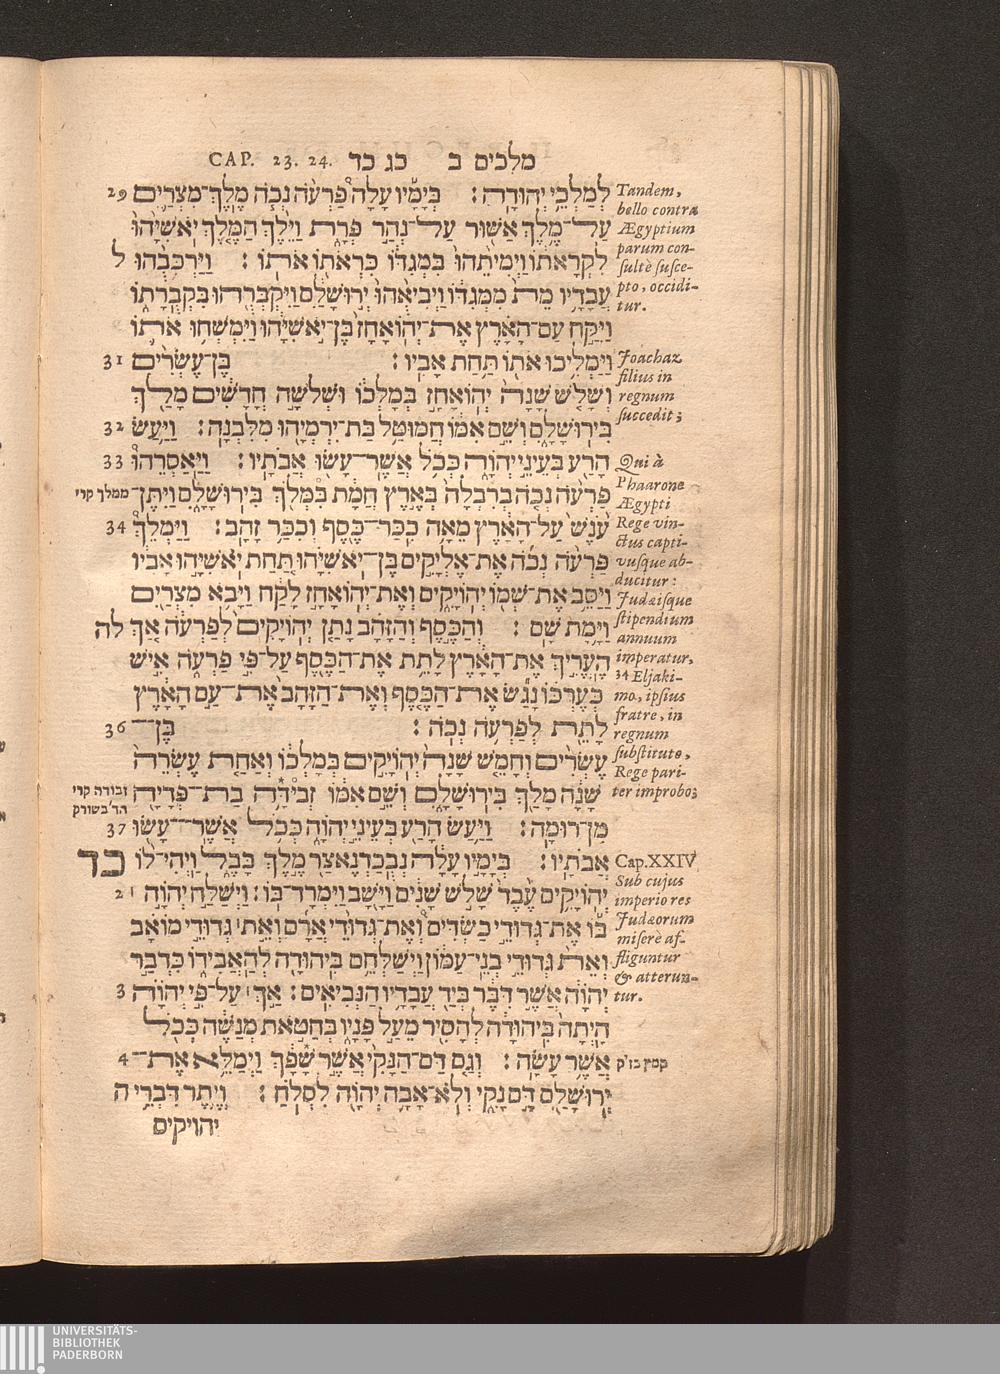 CAP. 23. 24. מלכים ב כג כד
לְמַלְכֵי יְהוּדָה׃ בְּיָמָיו עָלָה פַרְעֹה נְכֹה מֶלֶךְ־מִצְרַיִם 29
עַל־מֶלֶךְ אַשּׁוּר עַל־נְהַר פְּרָת וַיֵּלֶךְ הַמֶּלֶךְ יֹאשִׁיָּהוּ
לִקְרָאתוֹ וַיְמִיתֵהוּ בִּמְגִדּוֹ כִּרְאֹתוֹ אֹתוֹ׃ וַיַּרְכִּבֻהוּ ל
עֲבָדָיו מֵת מִמְּגִדּוֹ וַיְבִיאֻהוּ יְרוּשָׁלִַם וַיִּקְבְּרֻהוּ בִּקְבֻרָתוֹ
וַיִּקַּח עַם־הָאָרֶץ אֶת־יְהוֹאָחָז בֶּן־יֹאשִׁיָּהוּ וַיִּמְשְׁחוּ אֹתוֹ
וַיַּמְלִיכוּ אֹתוֹ תַּחַת אָבִיו׃ בֶּן־עֶשְׂרִים 31
וְשָׁלֹשׁ שָׁנָה יְהוֹאָחָז בְּמָלְכוֹ וּשְׁלֹשָׁה חֳדָשִׁים מָלַךְ
בִּירוּשָׁלִָם וְשֵׁם אִמּוֹ חֲמוּטַל בַּת־יִרְמְיָהוּ מִלִּבְנָה׃ וַיַּעַשׂ 32
הָרַע בְּעֵינֵי יְהוָה כְּכֹל אֲשֶׁר־עָשׂוּ אֲבֹתָיו׃ וַיַּאַסְרֵהוּ 33
פַרְעֹה נְכֹה בְרִבְלָה בְּאֶרֶץ חֲמָת בִּמְלֹךְ בִּירוּשָׁלִָם וַיִּתֶּן־
עֹנֶשׁ עַל־הָאָרֶץ מֵאָה כִכַּר־כֶּסֶף וְכִכַּר זָהָב׃ וַיַּמְלֵךְ 34
פַּרְעֹה נְכֹה אֶת־אֶלְיָקִים בֶּן־יֹאשִׁיָּהוּ תַּחַת יֹאשִׁיָּהוּ אָבִיו
וַיַּסֵּב אֶת־שְׁמוֹ יְהוֹיָקִים וְאֶת־יְהוֹאָחָז לָקַח וַיָּבֹא מִצְרַיִם
וַיָּמָת שָׁם׃ וְהַכֶּסֶף וְהַזָּהָב נָתַן יְהוֹיָקִים לְפַרְעֹה אַךְ לה
הֶעֱרִיךְ אֶת־הָאָרֶץ לָתֵת אֶת־הַכֶּסֶף עַל־פִּי פַרְעֹה אִישׁ
כְּעֶרְכּוֹ נָגַשׂ אֶת־הַכֶּסֶף וְאֶת־הַזָּהָב אֶת־עַם הָאָרֶץ
לָתֵת לְפַרְעֹה נְכֹה׃ בֶּן־ 36
עֶשְׂרִים וְחָמֵשׁ שָׁנָה יְהוֹיָקִים בְּמָלְכוֹ וְאַחַת עֶשְׂרֵה
שָׁנָה מָלַךְ בִּירוּשָׁלִָם וְשֵׁם אִמּוֹ זְבִידָּה בַת־פְּדָיָה
מִן־רוּמָה׃ וַיַּעַשׂ הָרַע בְּעֵינֵי יְהוָה כְּכֹל אֲשֶׁר־עָשׂוּ 37
אֲבֹתָיו׃ בְּיָמָיו עָלָה נְבֻכַדְנֶאצַּר מֶלֶךְ בָּבֶל וַיְהִי־לוֹ כד
יְהוֹיָקִים עֶבֶד שָׁלֹשׁ שָׁנִים וַיָּשָׁב וַיִּמְרָד־בּוֹ׃ וַיְשַׁלַּח יְהוָה׀ 2
בּוֹ אֶת־גְּדוּדֵי כַשְׂדִּים וְאֶת־גְּדוּדֵי אֲרָם וְאֵת׀ גְּדוּדֵי מוֹאָב
וְאֵת גְּדוּדֵי בְנֵי־עַמּוֹן וַיְשַׁלְּחֵם בִּיהוּדָה לְהַאֲבִידוֹ כִּדְבַר
יְהוָה אֲשֶׁר דִּבֶּר בְּיַד עֲבָדָיו הַנְּבִיאִים׃ אַךְ׀ עַל־פִּי יְהוָה 3
הָיְתָה בִּיהוּדָה לְהָסִיר מֵעַל פָּנָיו בְּחַטֹּאת מְנַשֶּׁה כְּכֹל
אֲשֶׁר עָשָׂה׃ וְגַם דַּם־הַנָּקִי אֲשֶׁר שָׁפָךְ וַיְמַלֵּא אֶת־ 4
יְרוּשָׁלִַם דָּם נָקִי וְלֹא־אָבָה יְהוָה לִסְלֹחַ׃ וְיֶתֶר דִּבְרֵי ה
יהויקים
ממלך קרי
זבודה קרי
הד' בשורק
קמץ בז"ק
Tandem,
bello contra
Ægyptium
parum con-
sultè susce-
pto, occidi-
tur.
Joachaz
filius in
regnum
succedit;
Qui à
Phaarone
Ægypti
Rege vin-
ctus capti-
vusque ab-
ducitur:
Judæisque
stipendium
annuum
imperatur,
34 Eljaki-
mo, ipsius
fratre, in
regnum
substituto,
Rege pari-
ter improbo;
Cap. XXIV
Sub cujus
imperio res
Judæorum
miserè af-
fliguntur
& atterun-
tur.
UNIVERSITÄTS-
BIBLIOTHEK
PADERBORN